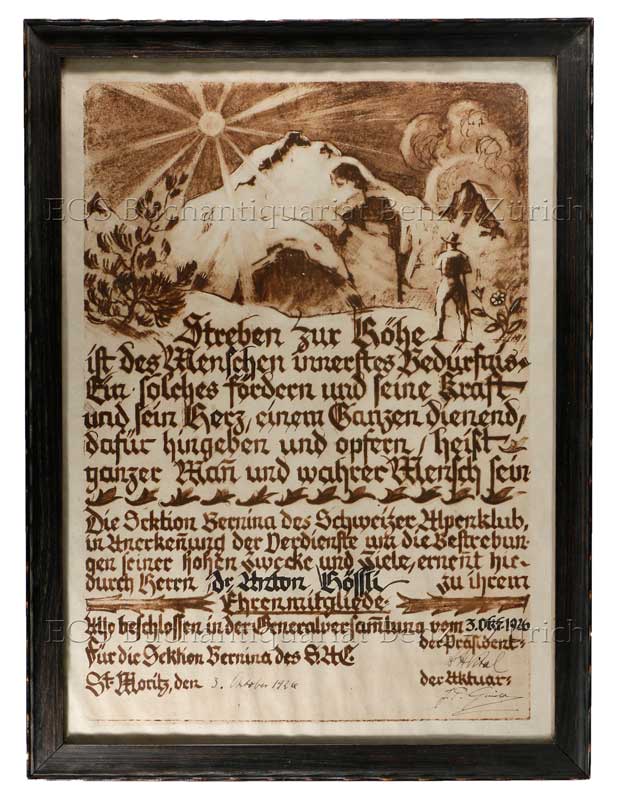 EOS Buchantiquariat Benz - Zürich
Streben zur Höhe
ist des Menschen innerstes Bedürfnis.
Ein solches fördern und seine Kraft
und sein Herz, einem Ganzen dienend,
dafür hingeben und opfern, heißt
ganzer Mañ und wahrer Mensch sein.
Die Sektion Bernina des Schweizer Alpenklub,
in Anerkeñung der Verdienste um die Bestrebun-
gen seiner hohen Zwecke und Ziele, ernent hie-
durch Herrn Dr Anton Hössli zu ihrem
Ehrenmitgliede.
Also beschlossen in der Generalversam̃lung vom 3. Okt. 1926
EOS Buchantiquariat Benz - Zürich
der Präsident:
Für die Sektion Bernina des S.A.C.
St. Moritz, den 3. Oktober 1926 der Aktuar: